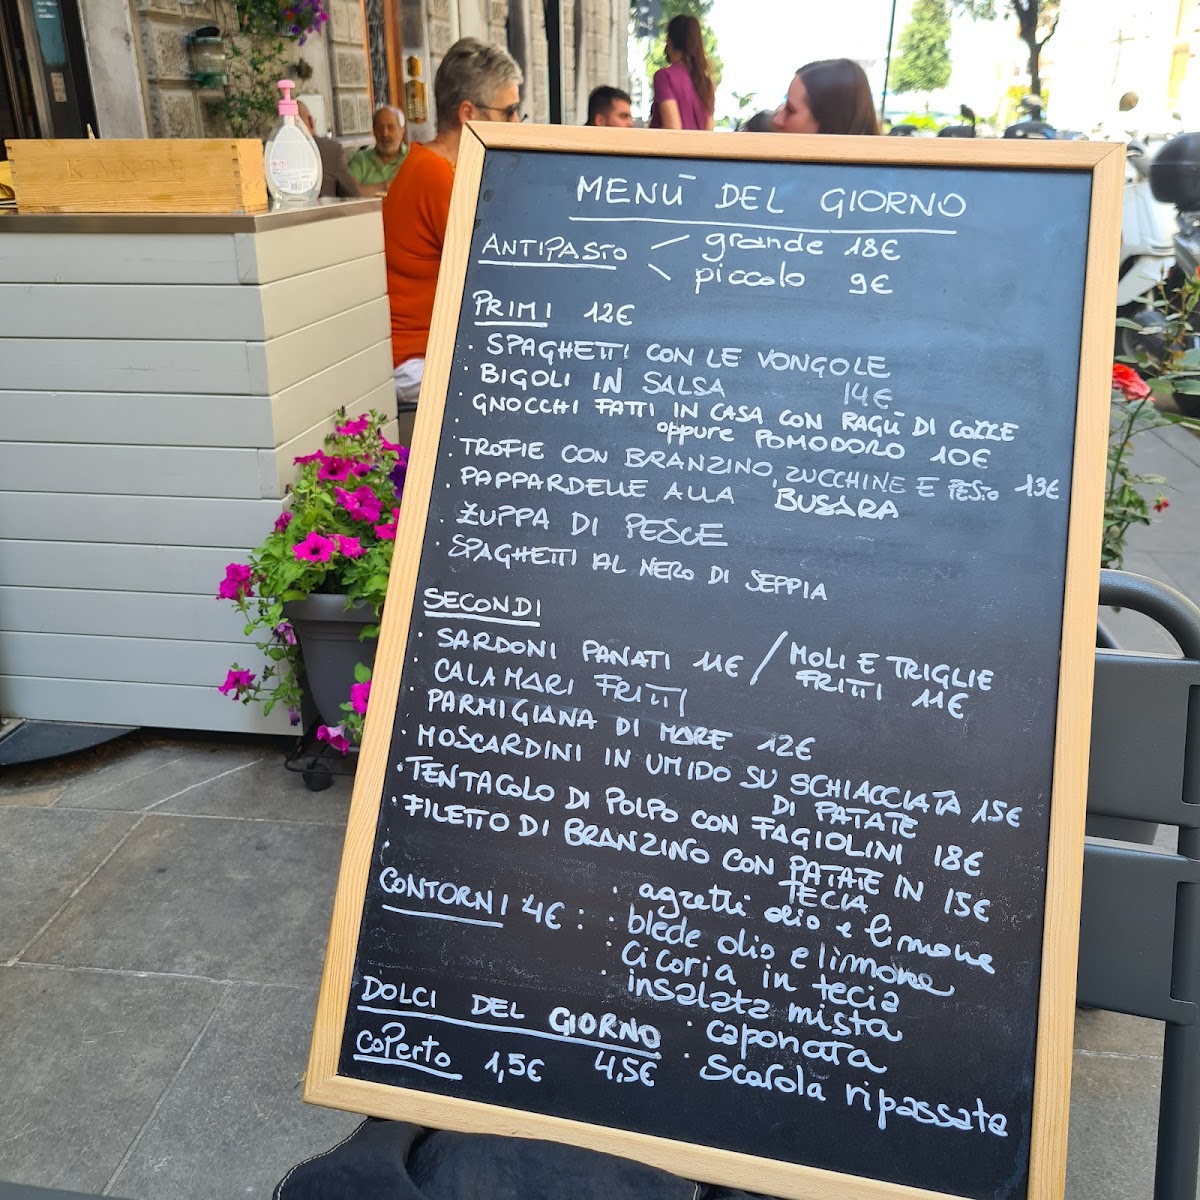 KANTE
MENÙ DEL GIORNO
ANTIPASTO grande 18€
piccolo 9€
PRIMI 12€
· SPAGHETTI CON LE VONGOLE
· BIGOLI IN SALSA 14€
· GNOCCHI FATTI IN CASA CON RAGÙ DI COZZE
oppure POMODORO 10€
· TROFIE CON BRANZINO, ZUCCHINE E PESTO 13€
· PAPPARDELLE ALLA BUSARA
· ZUPPA DI PESCE
· SPAGHETTI AL NERO DI SEPPIA
SECONDI
· SARDONI PANATI 11€ / MOLI E TRIGLIE
FRITTI 11€
· CALAMARI FRITTI
· PARMIGIANA DI MARE 12€
· MOSCARDINI IN UMIDO SU SCHIACCIATA 15€
DI PATATE
· TENTACOLO DI POLPO CON FAGIOLINI 18€
· FILETTO DI BRANZINO CON PATATE IN 15€
TECIA
CONTORNI 4€: · agretti olio e limone
· blede olio e limone
· cicoria in tecia
· insalata mista
· caponata
· Scarola ripassata
DOLCI DEL GIORNO
4,5€
COPerto 1,5€